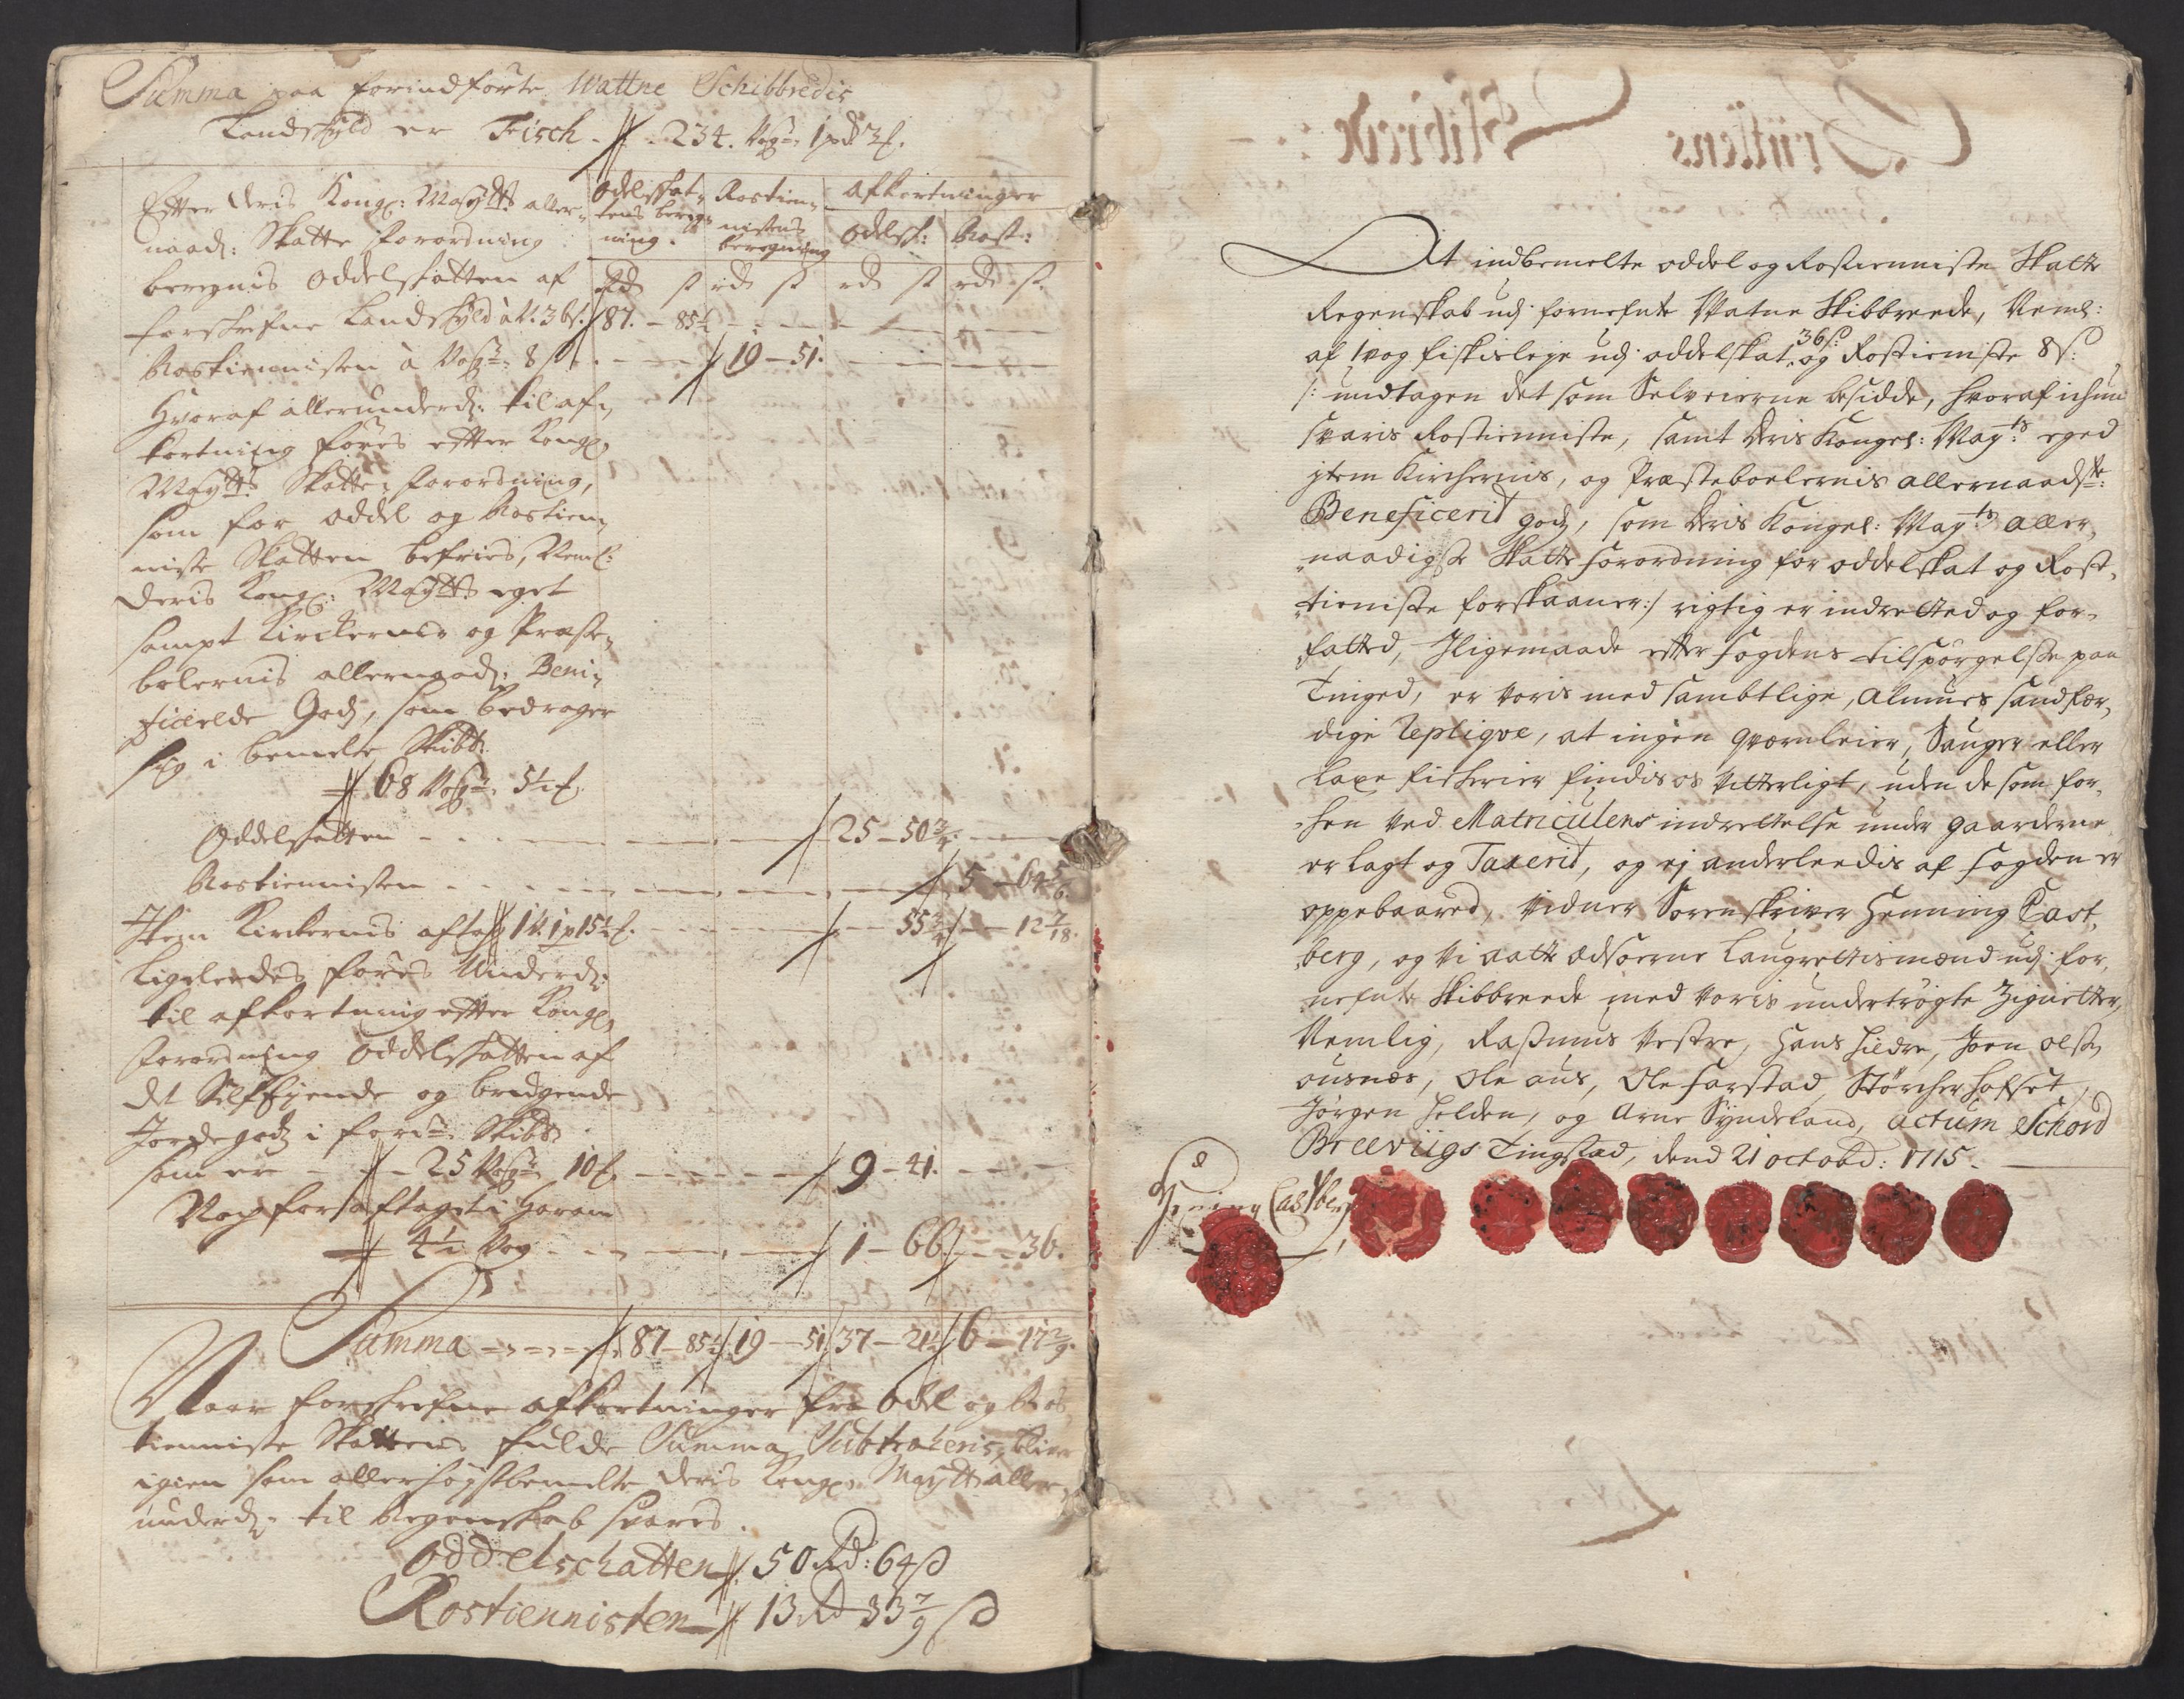 Summa paa forindførte Wattne Schibbredis
Landskyld er Fisch - 234. Vog: 1 pd 3 f.
Efter deris Kongl: Maytts aller-
naad: Skatte forordning
beregnis Oddelskatten af
forskrefne Landskyld à V. 36 s. 87. - 85½
Rostiennisten à Vog: 8 s - 19 - 51.
Odelskat-
tens bereg-
ning.
Rostien-
nistens
beregning
Afkortninger
Odelsk: Rost:
rd s rd s rd s rd s
Hvoraf allerunderd: til af-
kortning føres efter Kongl,
Maytts Skatte forordning,
som for oddel og Rostien-
niste Skatten befries, Neml:
Deris Kongl: Maytts eget
sampt Kirckernis og Præste-
bolernis allernaad: Beni-
ficerede Gods, som bedrager
sig i bemelte Skibb:
68 Vog: 5½ f.
Oddelskatten - 25 - 50¾
Rostiennisten - 5 - 64
Item Kirckernis aftag 1 V. 1 p 15½ f. - 55¾ - 12 7/18.
Ligeleedes føres Underd:
til afkortning efter Kongl,
forordning Oddelskatten af
det Selfeyende og brugende
Jordegods i for: Skibb:
som er - 25 Vog: 10 f. - 9 - 41.
Noch for aftaget i Haram
4½ Vog - 1 - 66 - 36.
Summa - 87 - 85½ 19 - 51 37 - 21½ 6 - 17 2/9.
Naar forskrefne afkortninger fra Odel og Ros
tienniste Skattens fulde Summa Subtraheris, blir
igien som allerhøystbemelte Deris Kongl: Maytt aller-
underd: til Regenskab svares.
Oddelschatten 50 Rd: 64 s
Rostiennisten 13 Rd 33 7/9 s
At indbemelte oddel og Rostienniste Skatte
Regenskab udj fornefnte Watne Skibbreede, Neml:
af 1 vog fiskisleye udj oddelskat 36 s: og Rostieniste 8 s:
/: undtagen det som Selveierne besidde, hvoraf ichun
svaris Rostienniste, samt Deris Kongel: May:ts eged
jtem Kirchernis, og Præsteboelernis allernaadste:
Beneficerit gods, som Deris Kongel: Mayts aller-
naadigste Skatte forordning for oddelskat og Ros-
tieniste forskaaner:/ rigtig er indretted og for-
fatted, Jligemaade efter fogdens tilspørgelse paa
Tinged, er voris med sambtlige, Almues sandfær-
dige Replique, at ingen quernleier, Sauger eller
laxe fiskerier findis os vitterligt, uden de som for-
hen ved Matriculens indrettelse under gaarderne
er lagt og Taxerit, og ej anderleedis af fogden er
oppebaared, Vidner Sorenskriver Henning Cast-
berg, og Vi aatte Edsoerne Laugrettismænd udj for-
nefnte Skibbreede med voris undertrøgte Zignetter,
Nemlig, Rasmus Vestre, Hans Hildre, Joen Olss
ousnæs, Ole aus, Ole farstad, Størcher hofset,
Jørgen Helden, og Arne Syndeland, actum Schord
Breeviigs Tingstad, dend 21 octobd: 1715.
Hening Castberg